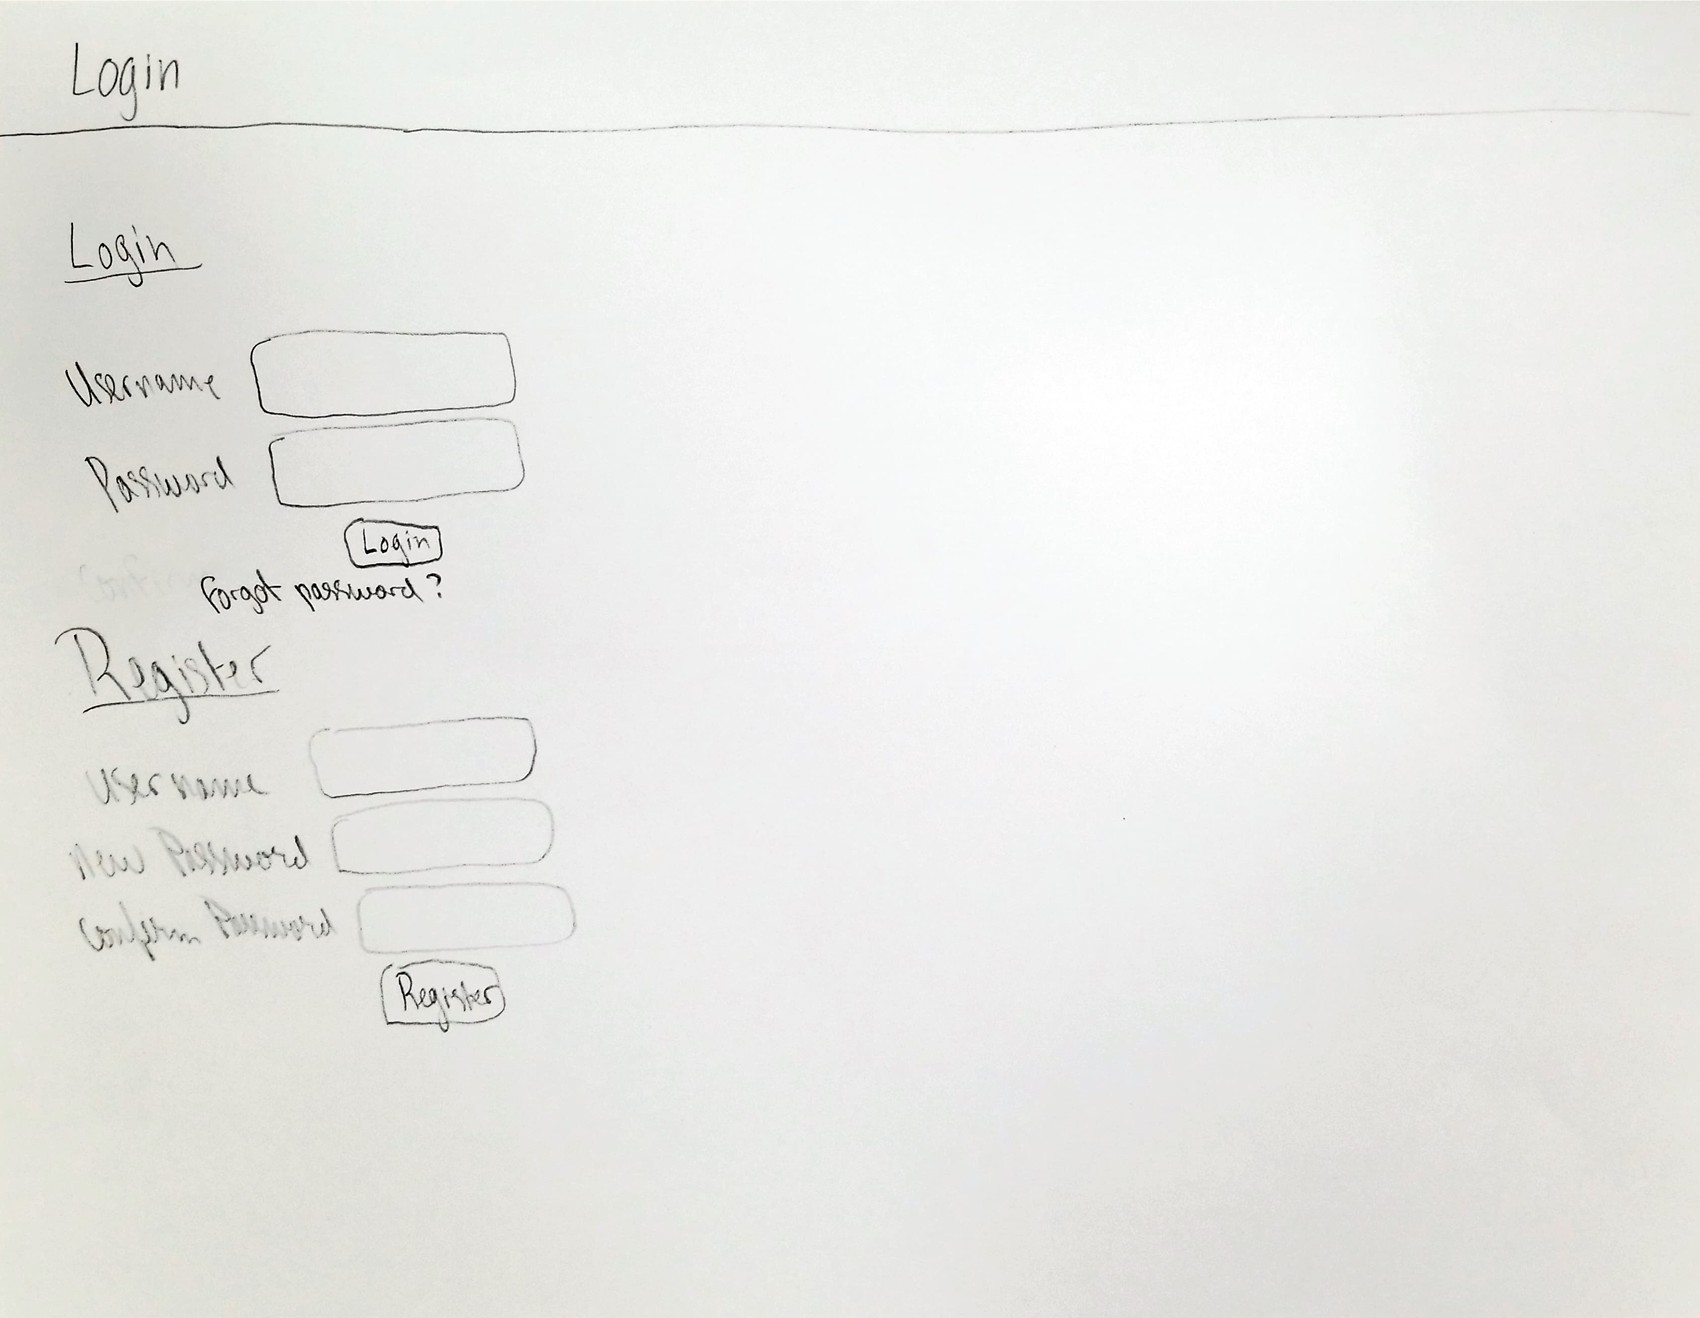 Login
Login
Username
Password
Login
Forgot password?
Register
Username
New Password
Confirm Password
Register